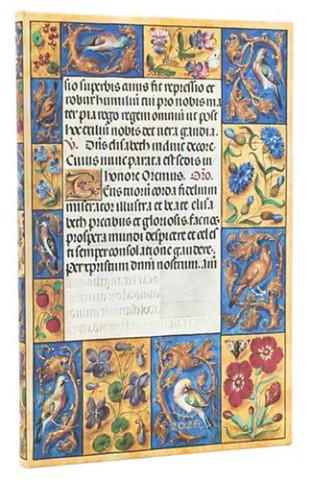 sio superbis cuius fit repressio et
robur humiliū tu pro nobis ma
ter pia rogo regem omniū ut post
hoc exiliū nobis det vera gaudia.
V. Elisabeth decore.
Cuius nunc parata est sedis in
honore Oremus. Oro.
tuorū corda fidelium
miserator illustra et beate elisa
beth precibus et gloriosis fac nos
prospera mundi despicere et celes
ti semper consolatione gaudere.
per xpristum dnm nostrum. am
2026